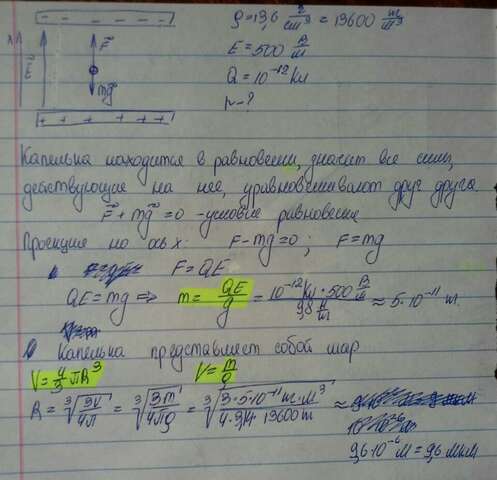 - - - - - - -
ρ = 13,6 г/см³ = 13600 кг/м³
x E⃗ F⃗
E = 500 В/м
mg⃗
Q = 10⁻¹² Кл
r - ?
+ + + + + +
Капелька находится в равновесии, значит все силы,
действующие на нее, уравновешивают друг друга
F⃗ + mg⃗ = 0 - условие равновесия
Проекция на ось x: F - mg = 0 ; F = mg
F = QE
QE = mg ⇒ m = QE/g = 10⁻¹² Кл · 500 В/м / 9,8 Н/ ≈ 5·10⁻¹¹
Капелька представляет собой шар
V = 4/3 πR³ V = m/ρ
R = ³√(3V/4π) = ³√(3m/4πρ) = ³√(3·5·10⁻¹¹ · м³ / 4·3,14·13600 ) ≈
9,6·10⁻⁶ м = 9,6 мкм